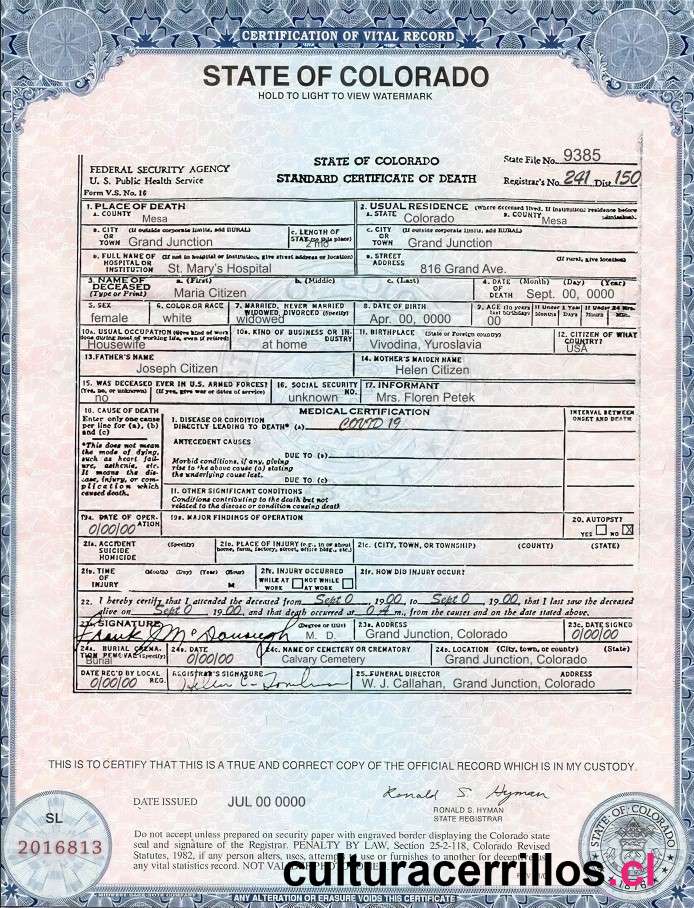 CERTIFICATION OF VITAL RECORD
STATE OF COLORADO
HOLD TO LIGHT TO VIEW WATERMARK
FEDERAL SECURITY AGENCY
U. S. Public Health Service
Form V.S. No. 16
STATE OF COLORADO
STANDARD CERTIFICATE OF DEATH
State File No. 9385
Registrar's No. 241 Dist. 150
1. PLACE OF DEATH
A. COUNTY Mesa
2. USUAL RESIDENCE (Where deceased lived. If institution: residence before
A. STATE Colorado B. COUNTY Mesa
B. CITY OR TOWN (If outside corporate limits, add RURAL) Grand Junction
C. LENGTH OF STAY (in this place) 2 mo
C. CITY OR TOWN (If outside corporate limits, add RURAL) Grand Junction
D. FULL NAME OF HOSPITAL OR INSTITUTION (If not in hospital or institution, give street address or location) St. Mary's Hospital
D. STREET ADDRESS (If rural, give location) 816 Grand Ave.
3. NAME OF DECEASED (Type or Print) a. (First) b. (Middle) c. (Last) Maria Citizen
4. DATE OF DEATH (Month) (Day) (Year) Sept. 00, 0000
5. SEX female
6. COLOR OR RACE white
7. MARRIED, NEVER MARRIED WIDOWED, DIVORCED (Specify) widowed
8. DATE OF BIRTH Apr. 00, 0000
9. AGE (In years last birthday) 00 If Under 1 Year Months Days If Under 24 Hrs. Hours Min.
10a. USUAL OCCUPATION (Give kind of work done during most of working life, even if retired) Housewife
10b. KIND OF BUSINESS OR INDUSTRY at home
11. BIRTHPLACE (State or Foreign country) Vivodina, Yuroslavia
12. CITIZEN OF WHAT COUNTRY? USA
13. FATHER'S NAME Joseph Citizen
14. MOTHER'S MAIDEN NAME Helen Citizen
15. WAS DECEASED EVER IN U.S. ARMED FORCES? (Yes, no, or unknown) (If yes, give war or dates of service) no
16. SOCIAL SECURITY NO. unknown
17. INFORMANT Mrs. Floren Petek
18. CAUSE OF DEATH
Enter only one cause per line for (a), (b) and (c)
*This does not mean the mode of dying, such as heart failure, asthenia, etc. It means the disease, injury, or complication which caused death.
MEDICAL CERTIFICATION
INTERVAL BETWEEN ONSET AND DEATH
I. DISEASE OR CONDITION
DIRECTLY LEADING TO DEATH* (a) COVID 19
ANTECEDENT CAUSES
DUE TO (b)
Morbid conditions, if any, giving rise to the above cause (a) stating the underlying cause last.
DUE TO (c)
II. OTHER SIGNIFICANT CONDITIONS
Conditions contributing to the death but not related to the disease or condition causing death
19a. DATE OF OPERATION 0/00/00
19b. MAJOR FINDINGS OF OPERATION
20. AUTOPSY?
YES NO X
21a. ACCIDENT SUICIDE HOMICIDE (Specify)
21b. PLACE OF INJURY (e.g., in or about home, farm, factory, street, office bldg., etc.)
21c. (CITY, TOWN, OR TOWNSHIP) (COUNTY) (STATE)
21d. TIME OF INJURY (Month) (Day) (Year) (Hour) M
21e. INJURY OCCURRED WHILE AT WORK NOT WHILE AT WORK
21f. HOW DID INJURY OCCUR?
22. I hereby certify that I attended the deceased from Sept 0, 1900, to Sept 0, 1900, that I last saw the deceased
alive on Sept 0, 1900, and that death occurred at 0 A m., from the causes and on the date stated above.
SIGNATURE (Degree or title) Frank J McDonough M. D.
23b. ADDRESS Grand Junction, Colorado
23c. DATE SIGNED 0/00/00
24a. BURIAL, CREMATION REMOVAL (Specify) Burial
24b. DATE 0/00/00
24c. NAME OF CEMETERY OR CREMATORY Calvary Cemetery
24d. LOCATION (City, town, or county) (State) Grand Junction, Colorado
DATE REC'D BY LOCAL REG. 0/00/00
REGISTRAR'S SIGNATURE Helen C. Tomlinson
25. FUNERAL DIRECTOR ADDRESS W. J. Callahan, Grand Junction, Colorado
THIS IS TO CERTIFY THAT THIS IS A TRUE AND CORRECT COPY OF THE OFFICIAL RECORD WHICH IS IN MY CUSTODY.
DATE ISSUED JUL 00 0000
Ronald S. Hyman
RONALD S. HYMAN
STATE REGISTRAR
SL
2016813
Do not accept unless prepared on security paper with engraved border displaying the Colorado state
seal and signature of the Registrar. PENALTY BY LAW, Section 25-2-118, Colorado Revised
Statutes, 1982, if any person alters, uses, attempts to use or furnishes to another for deceptive use
any vital statistics record. NOT VALID
STATE OF COLORADO
1876
culturacerrillos.cl
ANY ALTERATION OR ERASURE VOIDS THIS CERTIFICATE